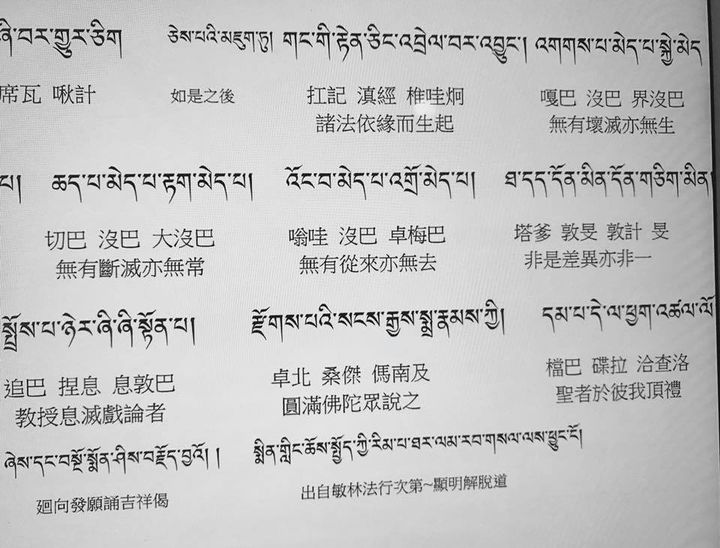 ཞི་བར་གྱུར་ཅིག ཅེས་པའི་མཇུག་ཏུ། གང་གི་རྟེན་ཅིང་འབྲེལ་བར་འབྱུང་། འགགས་པ་མེད་པ་སྐྱེ་མེད
席瓦 啾計 如是之後 扛記 滇經 椎哇炯 嘎巴 沒巴 界沒巴
諸法依緣而生起 無有壞滅亦無生
པ། ཆད་པ་མེད་པ་རྟག་མེད་པ། འོང་བ་མེད་པ་འགྲོ་མེད་པ། ཐ་དད་དོན་མིན་དོན་གཅིག་མིན།
切巴 沒巴 大沒巴 嗡哇 沒巴 卓梅巴 塔爹 敦旻 敦計 旻
無有斷滅亦無常 無有從來亦無去 非是差異亦非一
སྤྲོས་པ་ཉེར་ཞི་ཞི་སྟོན་པ། རྫོགས་པའི་སངས་རྒྱས་སྨྲ་རྣམས་ཀྱི། དམ་པ་དེ་ལ་ཕྱག་འཚལ་ལོ
追巴 捏息 息敦巴 卓北 桑傑 傌南及 檔巴 碟拉 洽查洛
教授息滅戲論者 圓滿佛陀眾說之 聖者於彼我頂禮
ཞེས་དང་བསྔོ་སྨོན་ཤིས་བརྗོད་བྱའོ། ། སྨིན་གླིང་ཆོས་སྤྱོད་ཀྱི་རིམ་པ་ཐར་ལམ་རབ་གསལ་ལས་ཕྱུང་ངོ།
迴向發願誦吉祥偈 出自敏林法行次第~顯明解脫道